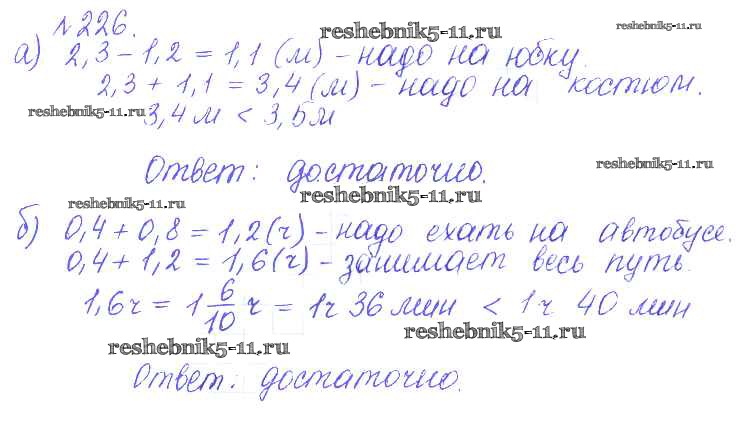 №226.
reshebnik5-11.ru
reshebnik5-11.ru
а) 2,3 - 1,2 = 1,1 (м) - надо на юбку.
2,3 + 1,1 = 3,4 (м) - надо на костюм.
reshebnik5-11.ru
3,4 м < 3,5 м
Ответ: достаточно.
reshebnik5-11.ru
reshebnik5-11.ru
reshebnik5-11.ru
б) 0,4 + 0,8 = 1,2 (ч) - надо ехать на автобусе.
0,4 + 1,2 = 1,6 (ч) - занимает весь путь.
1,6 ч = 1 6/10 ч = 1ч 36 мин < 1 ч 40 мин
reshebnik5-11.ru
reshebnik5-11.ru
Ответ: достаточно.